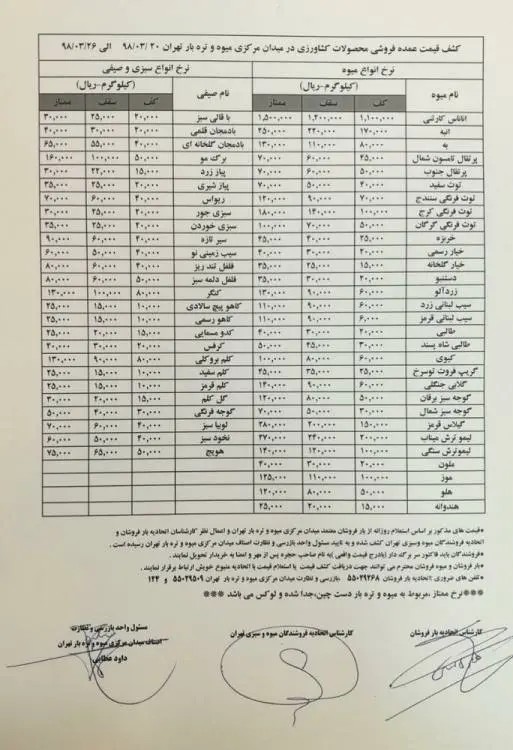 کشف قیمت عمده فروشی محصولات کشاورزی در میدان مرکزی میوه و تره بار تهران ۹۸/۰۳/۲۰ الی ۹۸/۰۳/۲۶
نرخ انواع میوه نرخ انواع سبزی و صیفی
نام میوه (کیلوگرم-ریال) نام صیفی (کیلوگرم-ریال)
کف سقف ممتاز کف سقف ممتاز
آناناس کارتنی ۱,۱۰۰,۰۰۰ ۱,۴۰۰,۰۰۰ ۱,۵۰۰,۰۰۰ باقالی سبز ۲۰,۰۰۰ ۲۵,۰۰۰ ۳۰,۰۰۰
انبه ۱۷۰,۰۰۰ ۲۲۰,۰۰۰ ۲۵۰,۰۰۰ بادمجان قلمی ۲۰,۰۰۰ ۳۰,۰۰۰ ۴۰,۰۰۰
به ۸۰,۰۰۰ ۱۱۰,۰۰۰ ۱۳۰,۰۰۰ بادمجان گلخانه ای ۴۰,۰۰۰ ۵۵,۰۰۰ ۶۵,۰۰۰
پرتقال تامسون شمال ۴۵,۰۰۰ ۶۰,۰۰۰ ۷۰,۰۰۰ برگ مو ۵۰,۰۰۰ ۱۰۰,۰۰۰ ۱۶۰,۰۰۰
پرتقال جنوب ۵۰,۰۰۰ ۶۰,۰۰۰ ۷۰,۰۰۰ پیاز زرد ۱۵,۰۰۰ ۲۲,۰۰۰ ۳۰,۰۰۰
توت سفید ۴۰,۰۰۰ ۵۰,۰۰۰ ۷۰,۰۰۰ پیاز شیری ۲۰,۰۰۰ ۲۵,۰۰۰ ۳۵,۰۰۰
توت فرنگی سنندج ۷۰,۰۰۰ ۹۰,۰۰۰ ۱۲۰,۰۰۰ ریواس ۴۰,۰۰۰ ۶۰,۰۰۰ ۷۰,۰۰۰
توت فرنگی کرج ۱۰۰,۰۰۰ ۱۴۰,۰۰۰ ۱۸۰,۰۰۰ سبزی جور ۲۰,۰۰۰ ۲۵,۰۰۰ ۳۵,۰۰۰
توت فرنگی گرگان ۵۰,۰۰۰ ۷۰,۰۰۰ ۱۰۰,۰۰۰ سبزی خوردن ۲۰,۰۰۰ ۲۵,۰۰۰ ۳۵,۰۰۰
خربزه ۲۵,۰۰۰ ۴۰,۰۰۰ ۴۵,۰۰۰ سیر تازه ۴۰,۰۰۰ ۶۰,۰۰۰ ۹۰,۰۰۰
خیار رسمی ۲۰,۰۰۰ ۳۰,۰۰۰ ۴۰,۰۰۰ سیب زمینی نو ۴۰,۰۰۰ ۵۰,۰۰۰ ۶۰,۰۰۰
خیار گلخانه ۱۵,۰۰۰ ۲۵,۰۰۰ ۳۵,۰۰۰ فلفل تند ریز ۴۰,۰۰۰ ۶۰,۰۰۰ ۸۰,۰۰۰
دستنبو ۲۰,۰۰۰ ۳۰,۰۰۰ ۳۵,۰۰۰ فلفل دلمه سبز ۵۰,۰۰۰ ۶۰,۰۰۰ ۸۰,۰۰۰
زردآلو ۶۰,۰۰۰ ۹۰,۰۰۰ ۱۳۰,۰۰۰ کنگر ۸۰,۰۰۰ ۱۰۰,۰۰۰ ۱۳۰,۰۰۰
سیب لبنانی زرد ۶۰,۰۰۰ ۹۰,۰۰۰ ۱۱۰,۰۰۰ کاهو پیچ سالادی ۱۰,۰۰۰ ۱۵,۰۰۰ ۲۵,۰۰۰
سیب لبنانی قرمز ۶,۰۰۰ ۹۰,۰۰۰ ۱۱۰,۰۰۰ کاهو رسمی ۱۰,۰۰۰ ۱۵,۰۰۰ ۲۵,۰۰۰
طالبی ۲۰,۰۰۰ ۳۰,۰۰۰ ۴۰,۰۰۰ کدو مسمایی ۱۵,۰۰۰ ۲۰,۰۰۰ ۲۵,۰۰۰
طالبی شاه پسند ۳۰,۰۰۰ ۴۵,۰۰۰ ۵۰,۰۰۰ کرفس ۲۰,۰۰۰ ۳۰,۰۰۰ ۴۰,۰۰۰
کیوی ۶۰,۰۰۰ ۸۰,۰۰۰ ۱۰۰,۰۰۰ کلم بروکلی ۸۰,۰۰۰ ۹۰,۰۰۰ ۱۳۰,۰۰۰
گریپ فروت توسرخ ۲۵,۰۰۰ ۳۵,۰۰۰ ۴۵,۰۰۰ کلم سفید ۱۰,۰۰۰ ۱۵,۰۰۰ ۲۵,۰۰۰
گلابی جنگلی ۶۰,۰۰۰ ۹۰,۰۰۰ ۱۴۰,۰۰۰ کلم قرمز ۱۰,۰۰۰ ۱۵,۰۰۰ ۲۵,۰۰۰
گوجه سبز برقان ۵۰,۰۰۰ ۸۰,۰۰۰ ۱۲۰,۰۰۰ گل کلم ۱۵,۰۰۰ ۲۰,۰۰۰ ۳۰,۰۰۰
گوجه سبز شمال ۳۰,۰۰۰ ۵۰,۰۰۰ ۷۰,۰۰۰ گوجه فرنگی ۳۰,۰۰۰ ۴۰,۰۰۰ ۵۰,۰۰۰
گیلاس قرمز ۱۵۰,۰۰۰ ۲۰۰,۰۰۰ ۲۸۰,۰۰۰ لوبیا سبز ۴۰,۰۰۰ ۶۰,۰۰۰ ۷۰,۰۰۰
لیمو ترش میناب ۲۰۰,۰۰۰ ۲۴۰,۰۰۰ ۲۷۰,۰۰۰ نخود سبز ۴۰,۰۰۰ ۵۰,۰۰۰ ۶۰,۰۰۰
لیموترش سنگی ۱۰۰,۰۰۰ ۱۲۰,۰۰۰ ۱۴۰,۰۰۰ هویج ۵۰,۰۰۰ ۶۵,۰۰۰ ۷۵,۰۰۰
ملون ۲۰,۰۰۰ ۳۰,۰۰۰ ۴۰,۰۰۰
موز ۱۰۰,۰۰۰ ۱۱۰,۰۰۰ ۱۲۵,۰۰۰
هلو ۵۰,۰۰۰ ۸۰,۰۰۰ ۱۲۰,۰۰۰
هندوانه ۱۵,۰۰۰ ۲۰,۰۰۰ ۲۵,۰۰۰
*قیمت های مذکور بر اساس استعلام روزانه از بار فروشان معتمد میدان مرکزی میوه و تره بار تهران و اعمال نظر کارشناسان اتحادیه بار فروشان و
اتحادیه فروشندگان میوه وسبزی تهران کشف شده و به تایید مسئول واحد بازرسی و نظارت اصناف میدان مرکزی میوه و تره بار تهران رسیده است .
*فروشندگان باید فاکتور سر برگ دار (بادرج قیمت واقعی )به نام صاحب حجره پس از مهر و امضا به خریدار تحویل نمایند .
*بار فروشان و میوه فروشان محترم می توانند جهت دریافت کشف قیمت یا استعلام قیمت با اتحادیه متبوع خویش ارتباط برقرار نمایند .
*تلفن های ضروری :اتحادیه بار فروشان ۵۵۰۲۹۲۶۸ بازرسی و نظارت میدان مرکزی میوه و تره بار تهران ۵۵۰۲۹۵۰۹ و ۱۲۴
***نرخ ممتاز ،مربوط به میوه و تره بار دست چین،جدا شده و لوکس می باشد ***
کارشناس اتحادیه بار فروشان کارشناس اتحادیه فروشندگان میوه و سبزی تهران مسئول واحد بازرسی و نظارت
اصناف میدان مرکزی میوه و تره بار تهران
داود عطایی